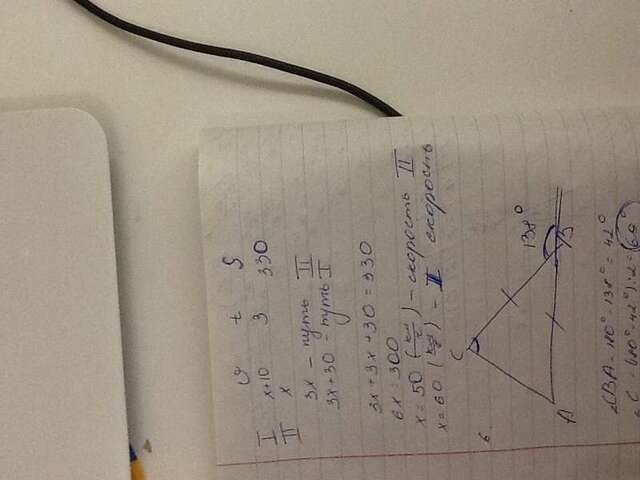 v t S
I x+10 3 330
II x
3x – путь II
3x+30 – путь I
3x+3x+30=330
6x=300
x=50 (км/ч) – скорость II
x=60 (км/ч) – I скорость
6.
C
138°
A B
∠CBA=180°-138°=42°
∠C=(180°-42°):2=69°